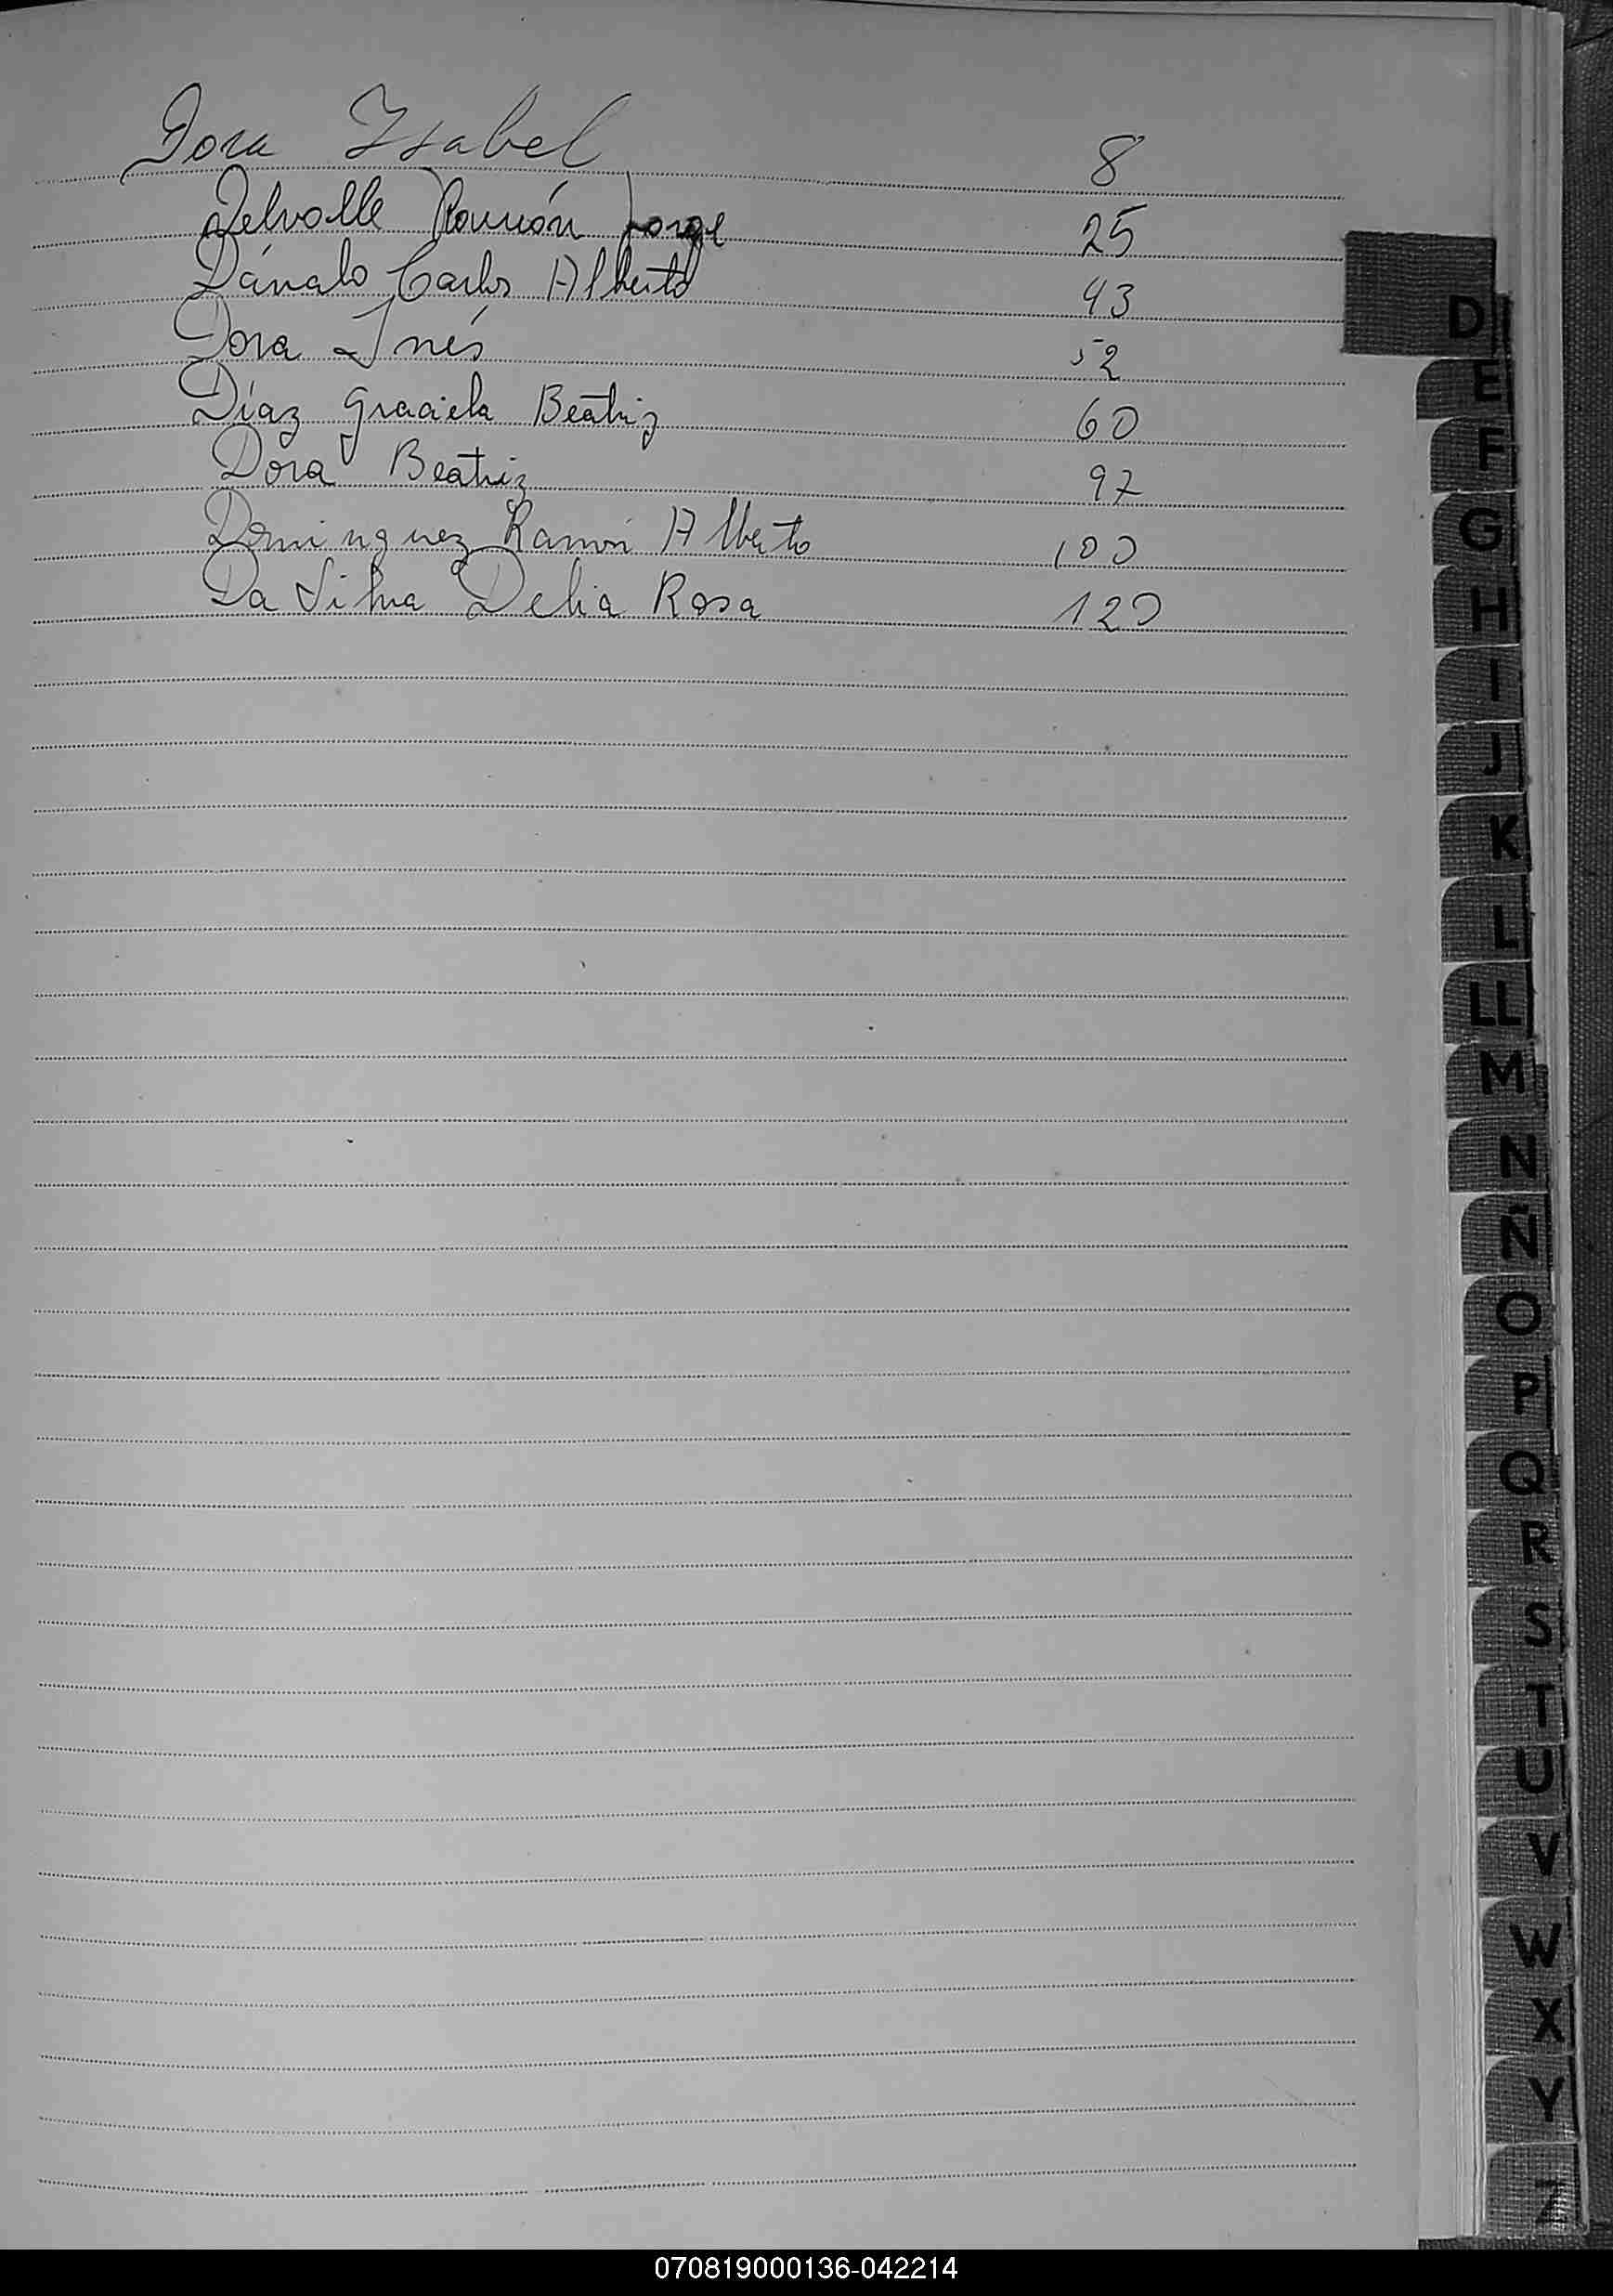 Dora Isabel 8
Delvalle Ramón Jorge 25
Dávalo Carlos Alberto 43
Dora Inés 52
Díaz Graciela Beatriz 60
Dora Beatriz 97
Dominguez Ramón Alberto 100
Da Silva Delia Rosa 120
D
E
F
G
H
I
J
K
L
LL
M
N
Ñ
O
P
Q
R
S
T
U
V
W
X
Y
Z
070819000136-042214